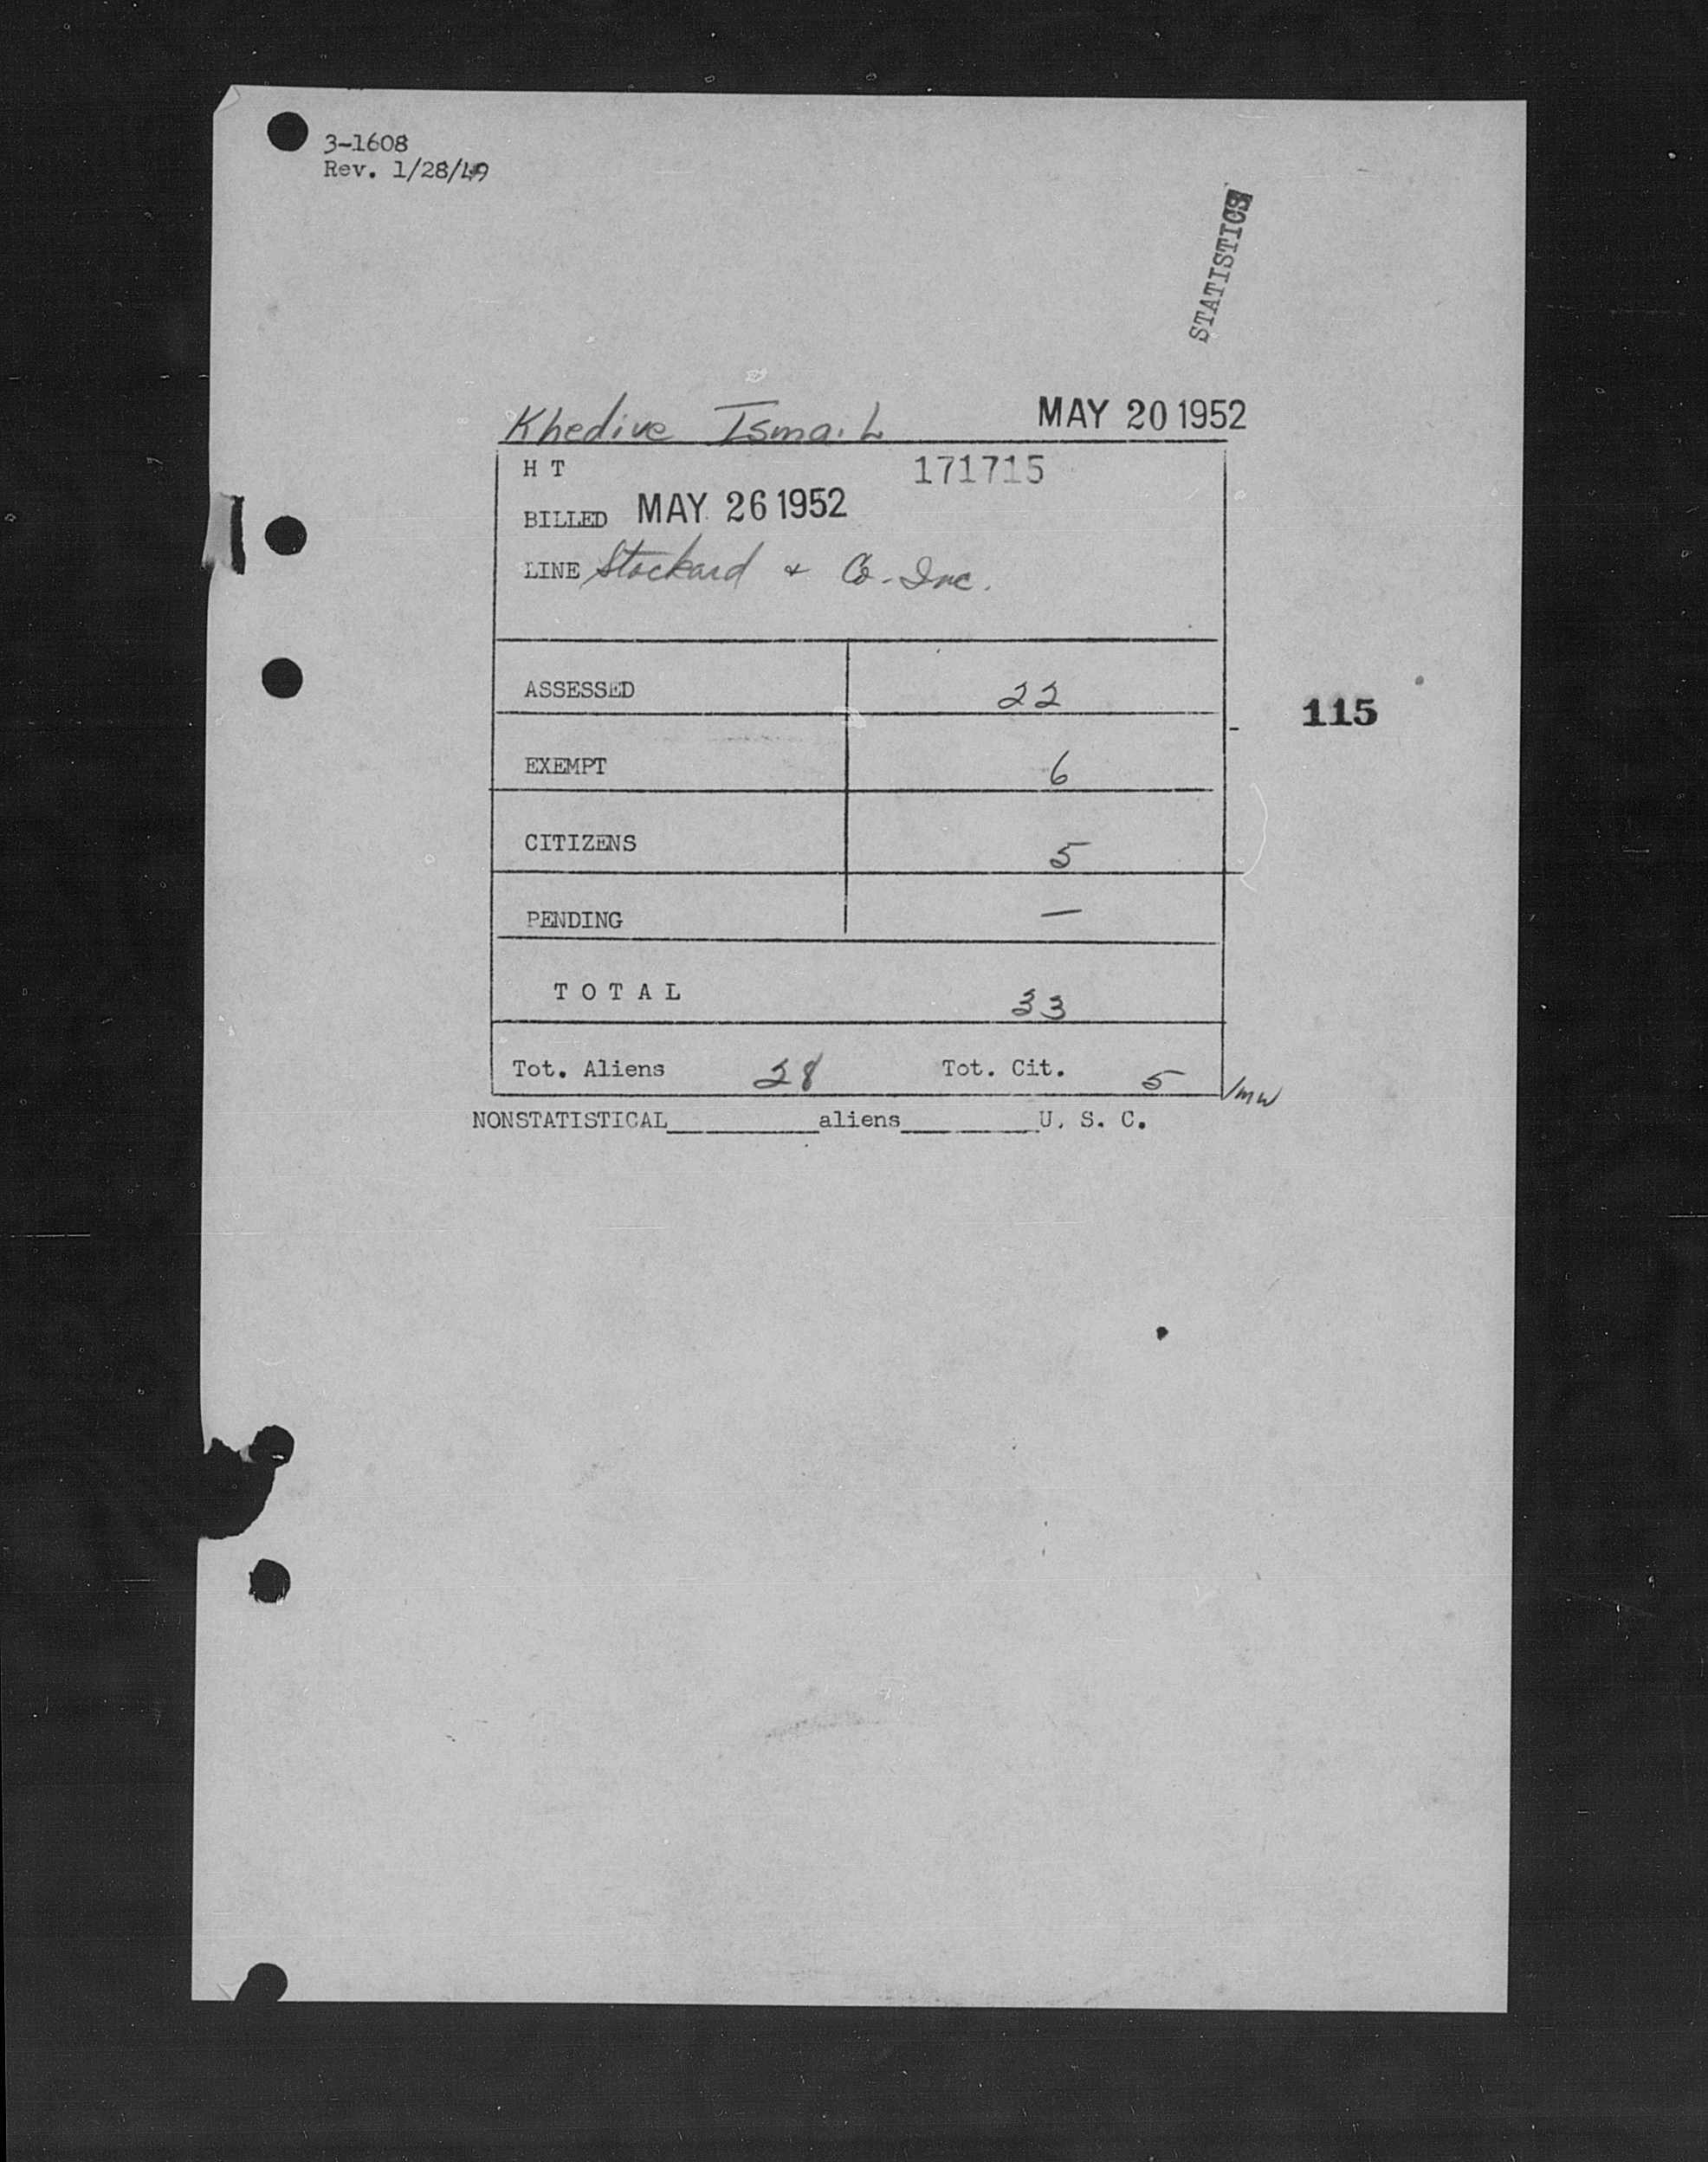 3-1608
Rev. 1/28/49
STATISTICS
Khedive Ismail MAY 20 1952
H T 171715
BILLED MAY 26 1952
LINE Stockard & Co. Inc.
ASSESSED 22
115
EXEMPT 6
CITIZENS 5
PENDING —
T O T A L 33
Tot. Aliens 28 Tot. Cit. 5 /mw
NONSTATISTICAL__________aliens__________U. S. C.